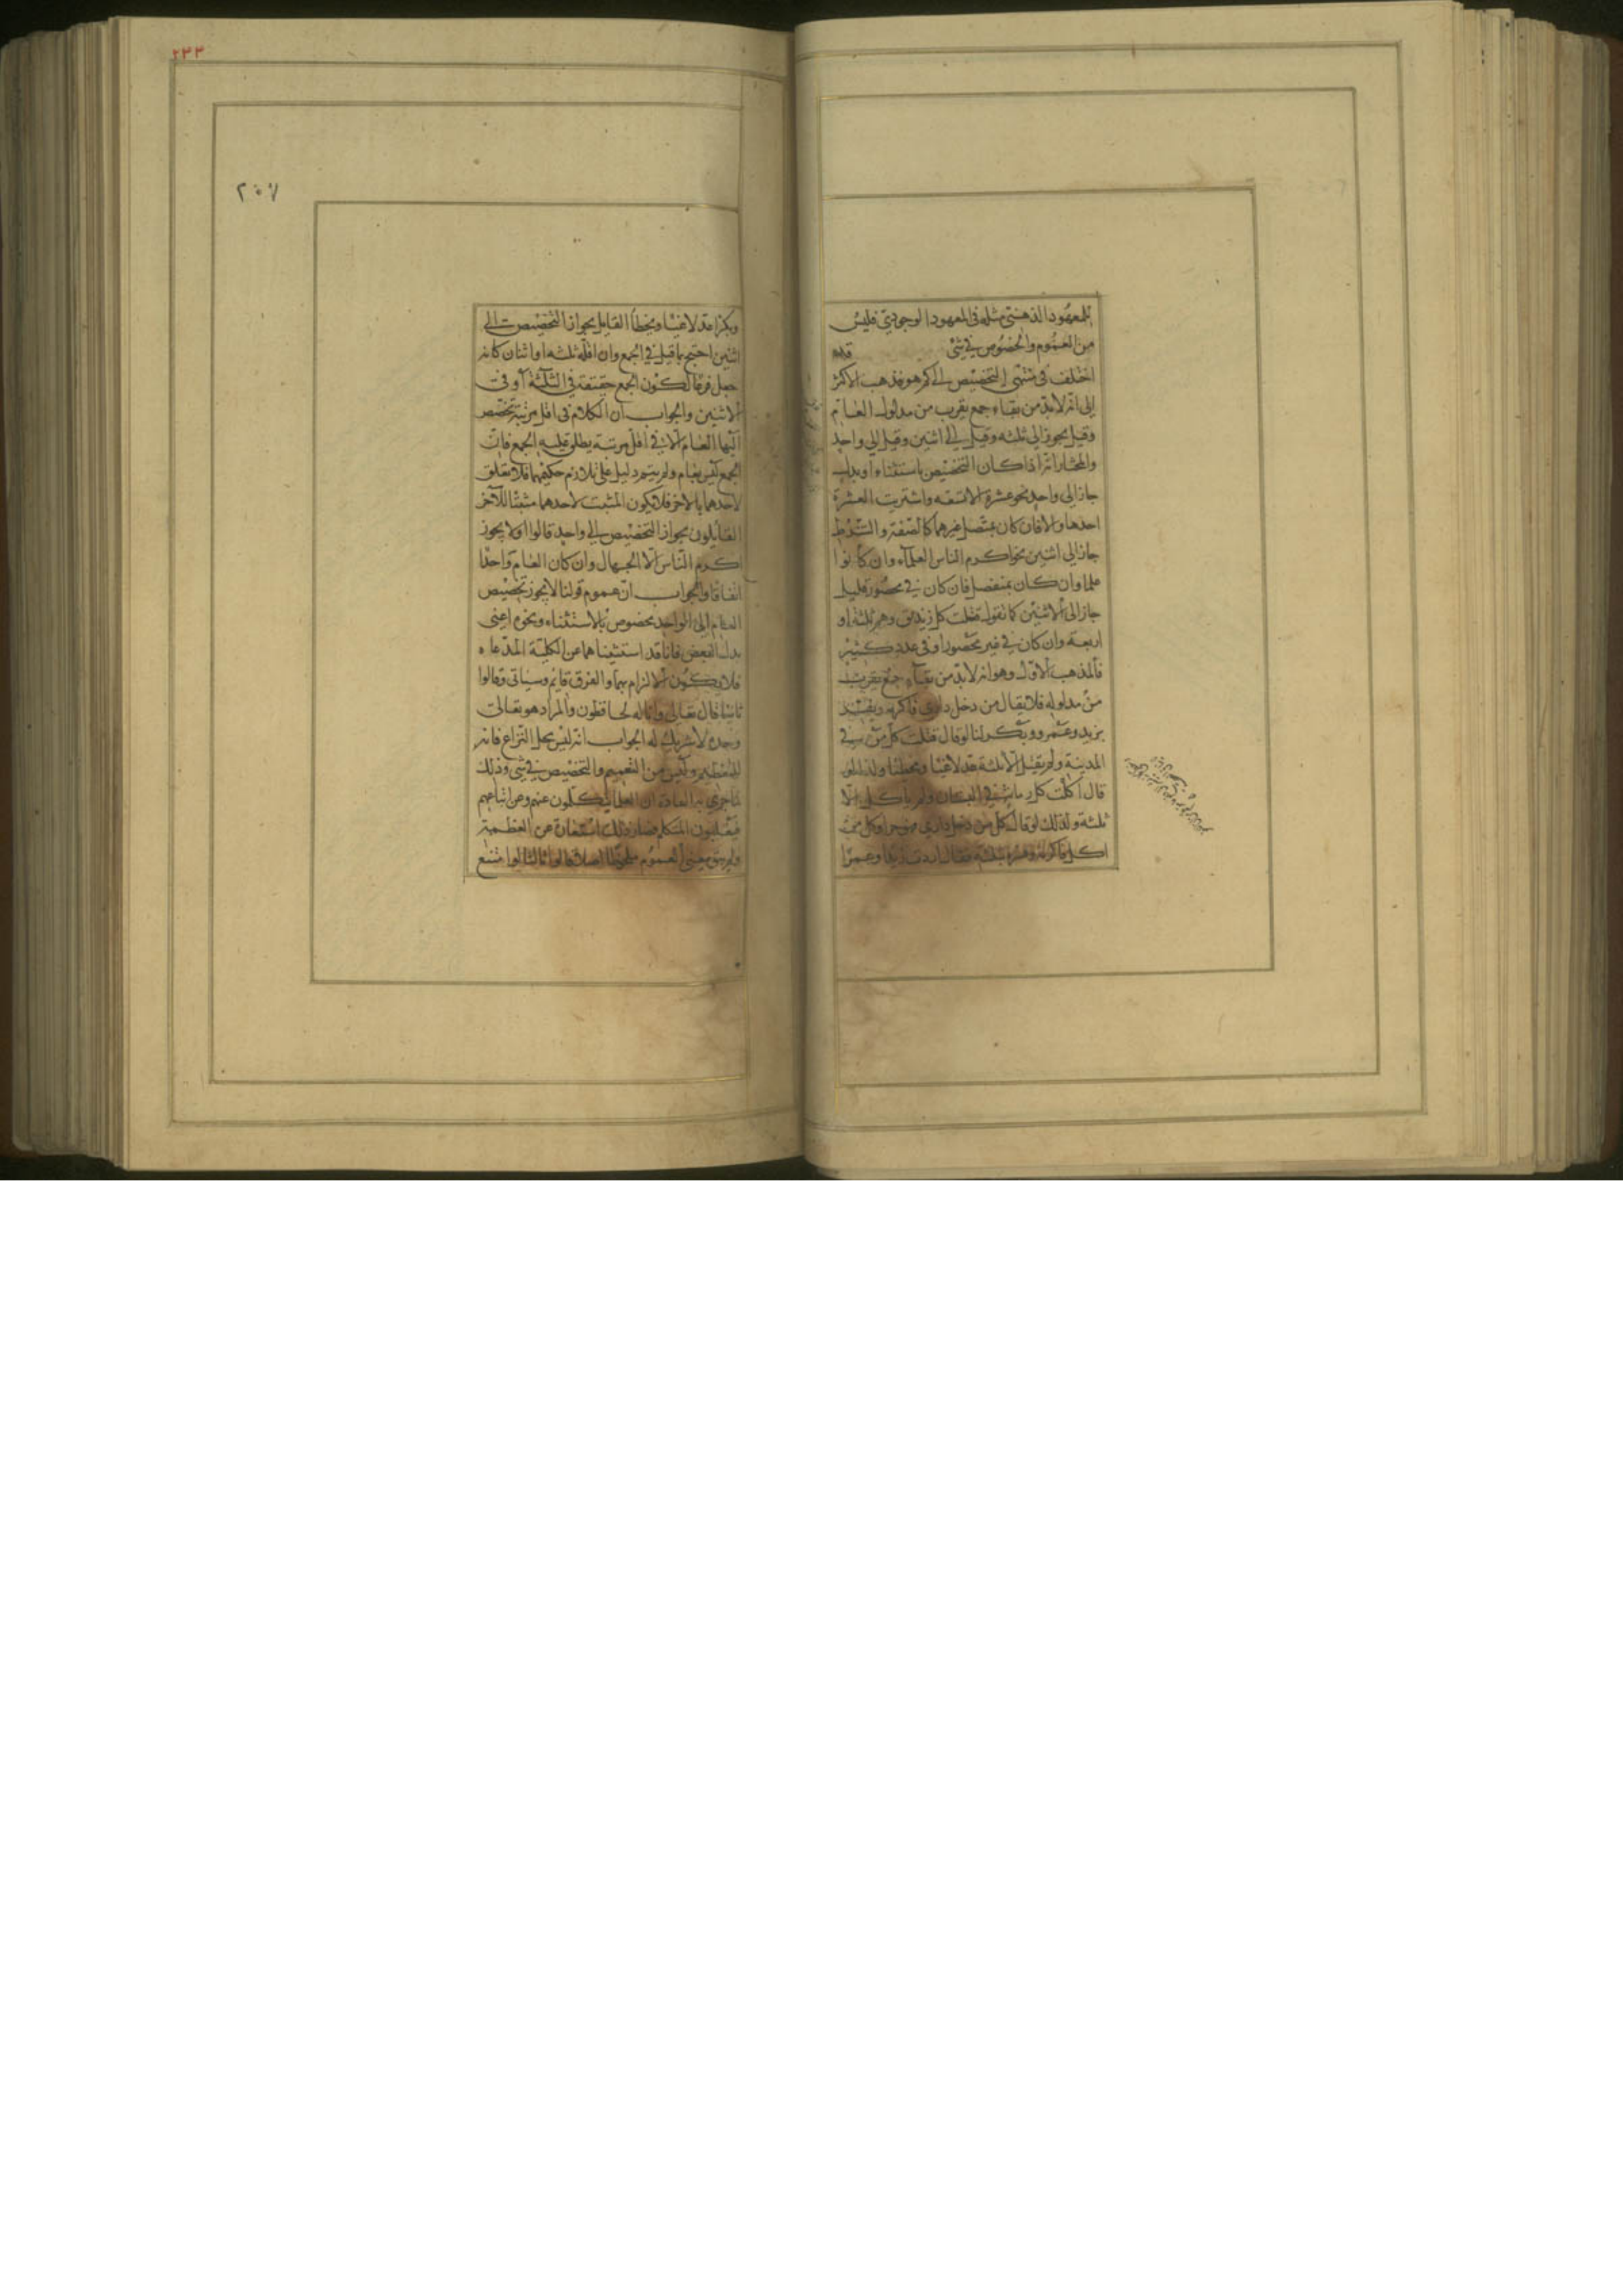 للمعهود الذهني مثله في المعهود الوجودي فليس
من العموم والخصوص في شئ قال
اختلف في منتهى التخصيص الى كم هو فذهب الاكثر
إلى انه لابد من بقاء جمع يقرب من مدلول العام
وقيل يجوز إلى ثلثه وقيل إلى اثنين وقيل إلى واحد
والمختار انه اذا كان التخصيص باستثناء او بدل
جاز إلى واحد نحو عشرة الا تسعه واشتريت العشرة
احدها والا فان كان بمتصل غيرهما كالصفة والشرط
جاز إلى اثنين نحو اكرم الناس العلماء وان كانوا
علما وان كان بمنفصل فان كان في محصور قليل
جاز الى الاثنين كما تقول قتلت كل زنديق وهم ثلثة او
اربعة وان كان في غير محصور او في عدد كثير
فالمذهب الاول وهو انه لابد من بقاء جمع يقرب
من مدلوله فلا يقال من دخل داري فاكرمه ويفسر
بزيد وعمرو وبكر لنا لو قال قتلت كل من في
المدينة ولم يقتل الا ثلثة عد لاغيا ومخطئا ولذلك لو
قال اكلت كل رمانة في البستان ولم ياكل الا
ثلثة وكذلك لو قال كل من دخل داري فهو حر او كل من
اكل فاكرمه وفسره بثلثة فقال اردت زيدا وعمرا
٢٣٣
٢٠٧
وبكرا عد لاغيا ومخطأ القائل بجواز التخصيص الى
اثنين احتج بما قيل في الجمع وان اقله ثلثه او اثنان كانه
جعل فرعا لكون الجمع حقيقة في الثلثة او في
الاثنين والجواب ان الكلام في اقل مرتبة تخصص
اليها العام لا في اقل مرتبة يطلق عليه الجمع فان
الجمع ليس بعام ولم يقم دليل على تلازم حكميهما فلا تعلق
لاحدهما بالاخر فلا يكون المثبت لاحدهما مثبتا للآخر
القائلون بجواز التخصيص إلى واحد قالوا اولا يجوز
اكرم الناس الا الجهال وان كان العام واحدا
اتفاقا والجواب ان عموم قولنا لا يجوز تخصيص
العام إلى الواحد مخصوص بالاستثناء ونحوه اعني
بدل البعض فانا قد استثنيناهما عن الكلية المدعاه
فلا يكون الالزام بهما والفرق قائم وسياتي وقالوا
ثانيا قال تعالى وانا له لحافظون والمراد هو تعالى
وحده لا شريك له الجواب انه ليس محل النزاع فانه
للتعظيم وليس من التعميم والتخصيص في شئ وذلك
لما جرى به العادة ان العظماء يتكلمون عنهم وعن اتباعهم
فيغلبون المتكلم فصار ذلك استعارة عن العظمة
ولم يبق معنى العموم ملحوظا اصلا قالوا ثالثا لو امتنع